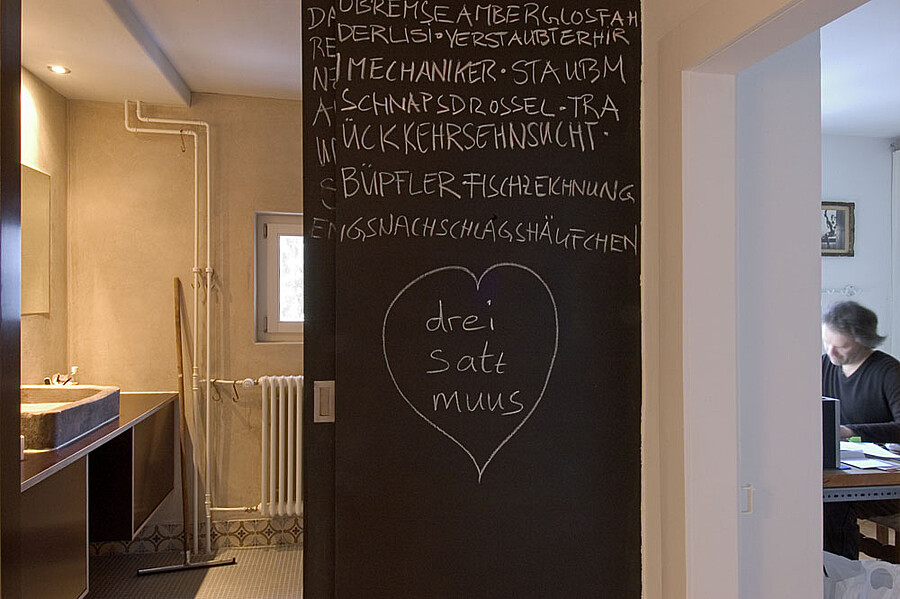 OBREMSE AMBERGLOSFAH
DERLISI · VERSTAUBTER HIR
MECHANIKER · STAUBM
SCHNAPSDROSSEL · TRA
ÜCKKEHRSEHNSUCHT ·
BÜPFLER · FISCHZEICHNUNG
NGSNACHSCHLAGSHÄUFCHEN
drei
satt
muus